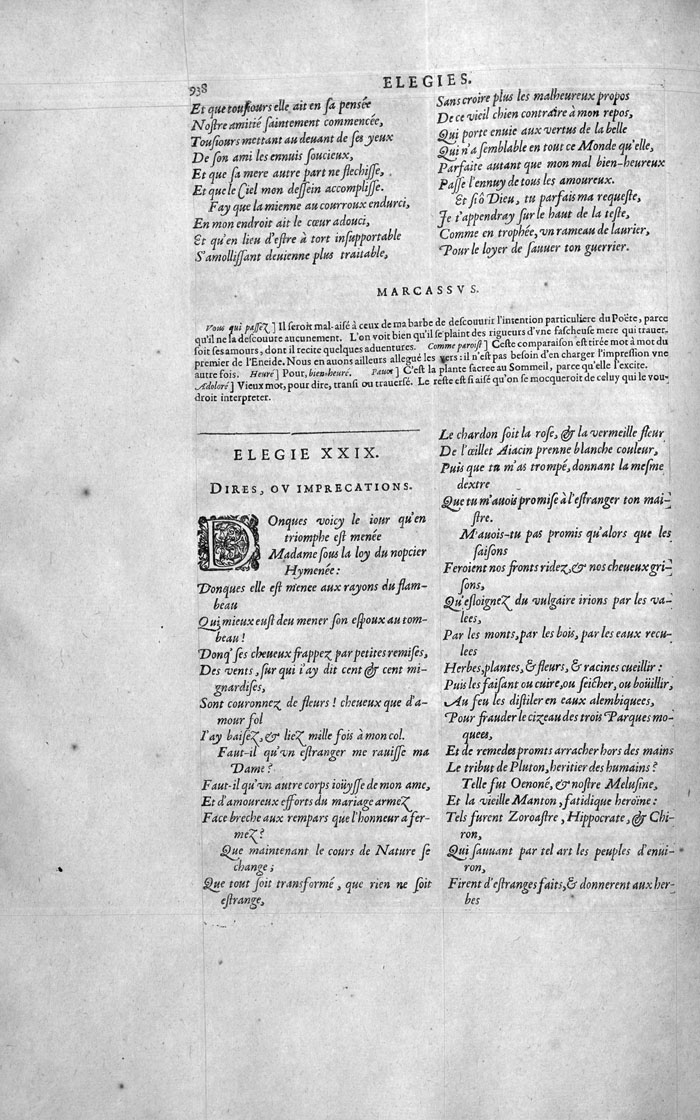 938
ELEGIES.
Et que tousiours elle ait en sa pensée
Nostre amitié saintement commencée,
Tousiours mettant au deuant de ses yeux
De son ami les ennuis soucieux,
Et que sa mere autre part ne flechisse,
Et que le Ciel mon dessein accomplisse.
Fay que la mienne au courroux endurci,
En mon endroit ait le cœur adouci,
Et qu'en lieu d'estre à tort insupportable
S'amollissant deuienne plus traitable,
Sans croire plus les malheureux propos
De ce vieil chien contraire à mon repos,
Qui porte enuie aux vertus de la belle
Qui n'a semblable en tout ce Monde qu'elle,
Parfaite autant que mon mal bien-heureux
Passe l'ennuy de tous les amoureux.
Et si ô Dieu, tu parfais ma requeste,
Je t'appendray sur le haut de la teste,
Comme en trophée, vn rameau de laurier,
Pour le loyer de sauuer ton guerrier.
MARCASSVS.
Vous qui passez] Il seroit mal-aisé à ceux de ma barbe de descouurir l'intention particuliere du Poëte, parce
qu'il ne la descouure aucunement. L'on voit bien qu'il se plaint des rigueurs d'vne fascheuse mere qui trauer-
soit ses amours, dont il recite quelques aduentures. Comme paroist] Ceste comparaison est tirée mot à mot du
premier de l'Eneide. Nous en auons ailleurs allegué les vers : il n'est pas besoin d'en charger l'impression vne
autre fois. Heuré] Pour, bien-heuré. Pauot] C'est la plante sacree au Sommeil, parce qu'elle l'excite.
Adoloré] Vieux mot, pour dire, transi ou trauersé. Le reste est si aisé qu'on se mocqueroit de celuy qui le vou-
droit interpreter.
ELEGIE XXIX.
DIRES, OV IMPRECATIONS.
DOnques voicy le iour qu'en
triomphe est menée
Madame sous la loy du nopcier
Hymenée :
Donques elle est menee aux rayons du flam-
beau
Qui mieux eust deu mener son espoux au tom-
beau !
Donq' ses cheueux frappez par petites remises,
Des vents, sur qui i'ay dit cent & cent mi-
gnardises,
Sont couronnez de fleurs ! cheueux que d'a-
mour fol
I'ay baisez, & liez mille fois à mon col.
Faut-il qu'vn estranger me rauisse ma
Dame ?
Faut-il qu'vn autre corps ioüysse de mon ame,
Et d'amoureux efforts du mariage armez
Face breche aux rempars que l'honneur a fer-
mez ?
Que maintenant le cours de Nature se
change ;
Que tout soit transformé, que rien ne soit
estrange,
Le chardon soit la rose, & la vermeille fleur
De l'œillet Aiacin prenne blanche couleur,
Puis que tu m'as trompé, donnant la mesme
dextre
Que tu m'auois promise à l'estranger ton mai-
stre.
M'auois-tu pas promis qu'alors que les
saisons
Feroient nos fronts ridez, & nos cheueux gri-
sons,
Qu'esloignez du vulgaire irions par les va-
lees,
Par les monts, par les bois, par les eaux recu-
lees
Herbes, plantes, & fleurs, & racines cueillir :
Puis les faisant ou cuire, ou seicher, ou boüillir,
Au feu les distiler en eaux alembiquees,
Pour frauder le cizeau des trois Parques mo-
quees,
Et de remedes promts arracher hors des mains
Le tribut de Pluton, heritier des humains ?
Telle fut Oenoné, & nostre Melusine,
Et la vieille Manton, fatidique heroïne :
Tels furent Zoroastre, Hippocrate, & Chi-
ron,
Qui sauuant par tel art les peuples d'enui-
ron,
Firent d'estranges faits, & donnerent aux her-
bes